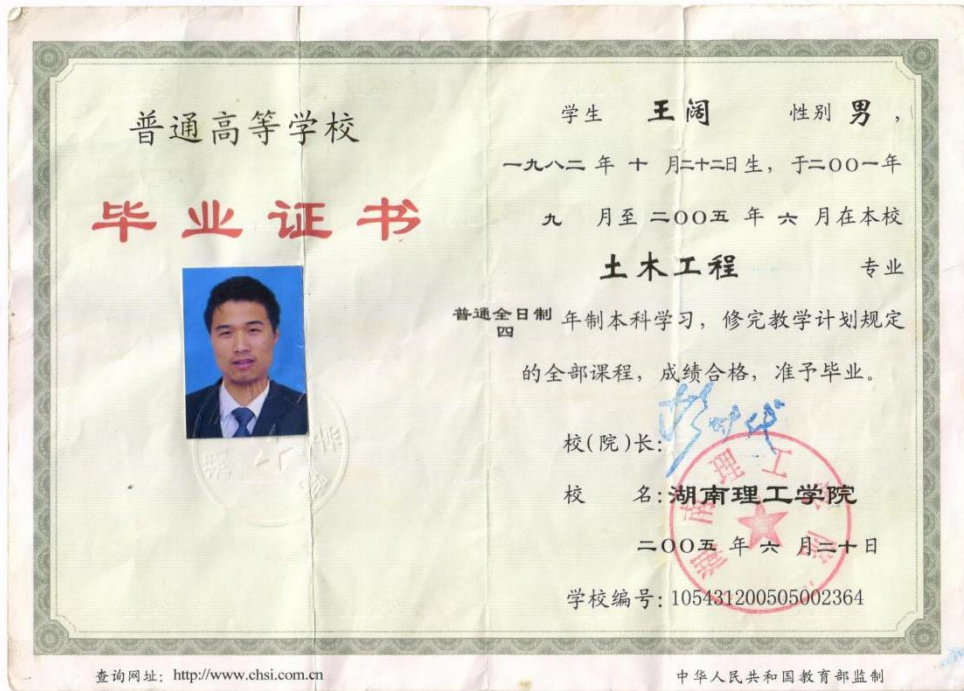 普通高等学校
毕业证书
学生 王阔 性别 男，
一九八二 年 十 月二十二日生，于二〇〇一年
九 月至 二〇〇五 年 六 月在本校
土木工程 专业
普通全日制
四 年制本科学习，修完教学计划规定
的全部课程，成绩合格，准予毕业。
校(院)长：
校 名：湖南理工学院
湖南理工学院
二〇〇五 年 六 月二十日
学校编号：105431200505002364
查询网址：http://www.chsi.com.cn
中华人民共和国教育部监制